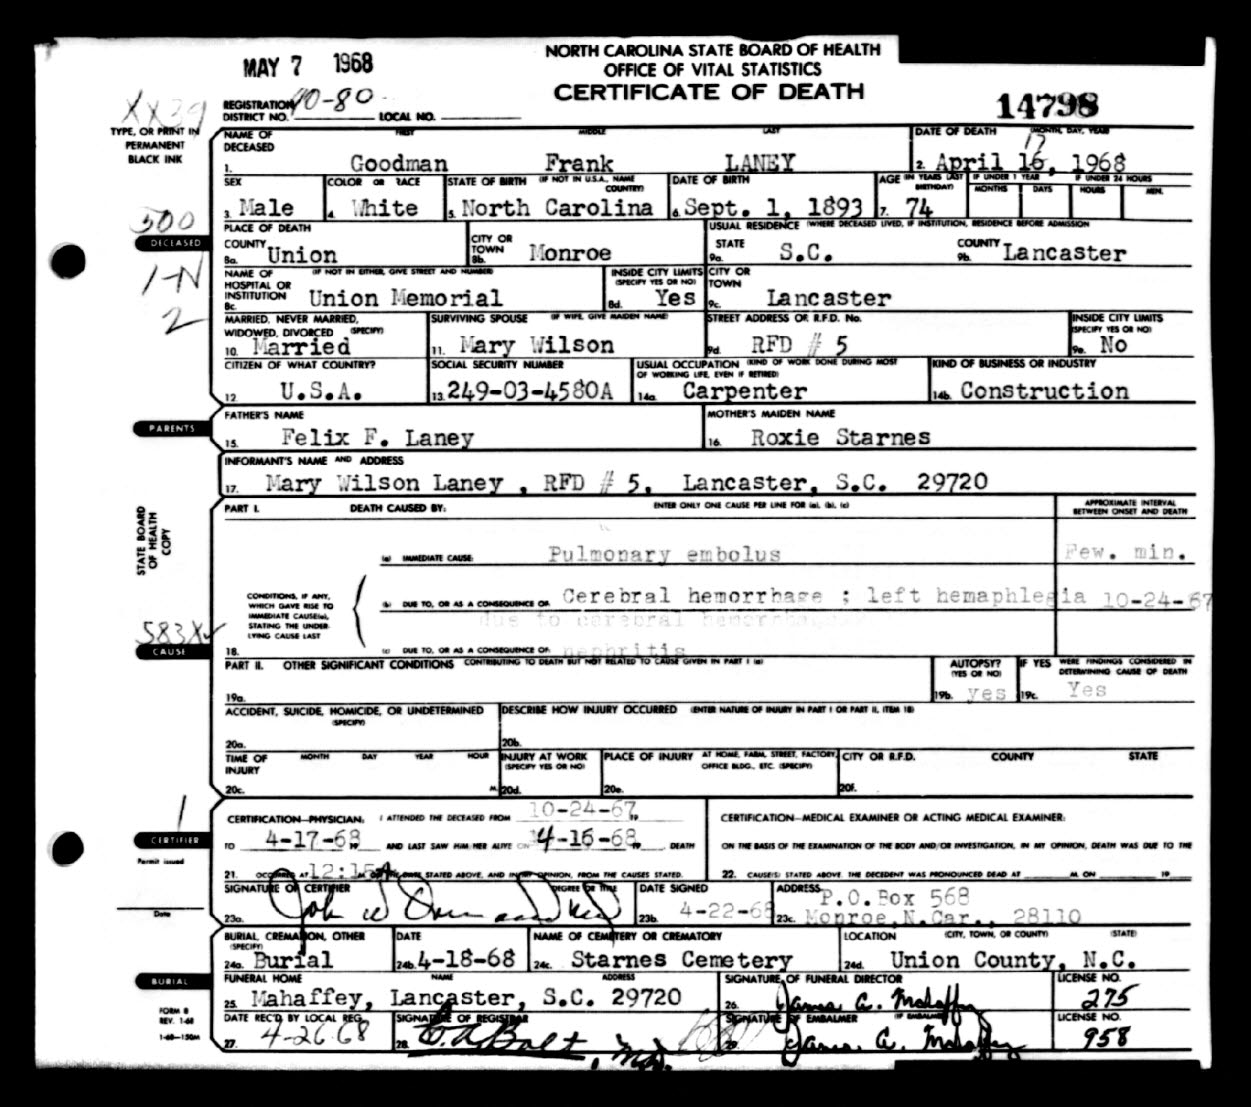 NORTH CAROLINA STATE BOARD OF HEALTH
OFFICE OF VITAL STATISTICS
CERTIFICATE OF DEATH
MAY 7 1968
14798
XX39
REGISTRATION DISTRICT NO. 90-80 LOCAL NO.
TYPE, OR PRINT IN
PERMANENT
BLACK INK
NAME OF DECEASED FIRST MIDDLE LAST DATE OF DEATH (MONTH, DAY, YEAR)
1. Goodman Frank LANEY 2. April 16, 1968
17
SEX COLOR OR RACE STATE OF BIRTH (IF NOT IN U.S.A., NAME COUNTRY) DATE OF BIRTH AGE (IN YEARS LAST BIRTHDAY) IF UNDER 1 YEAR IF UNDER 24 HOURS
MONTHS DAYS HOURS MIN.
3. Male 4. White 5. North Carolina 6. Sept. 1, 1893 7. 74
500
DECEASED
1-N
2
PLACE OF DEATH USUAL RESIDENCE (WHERE DECEASED LIVED, IF INSTITUTION, RESIDENCE BEFORE ADMISSION
COUNTY CITY OR TOWN STATE COUNTY
8a. Union 8b. Monroe 9a. S.C. 9b. Lancaster
NAME OF HOSPITAL OR INSTITUTION (IF NOT IN EITHER, GIVE STREET AND NUMBER) INSIDE CITY LIMITS (SPECIFY YES OR NO) CITY OR TOWN
8c. Union Memorial 8d. Yes 9c. Lancaster
MARRIED, NEVER MARRIED, WIDOWED, DIVORCED (SPECIFY) SURVIVING SPOUSE (IF WIFE, GIVE MAIDEN NAME) STREET ADDRESS OR R.F.D. No. INSIDE CITY LIMITS (SPECIFY YES OR NO)
10. Married 11. Mary Wilson 9d. RFD # 5 9e. No
CITIZEN OF WHAT COUNTRY? SOCIAL SECURITY NUMBER USUAL OCCUPATION (KIND OF WORK DONE DURING MOST OF WORKING LIFE, EVEN IF RETIRED) KIND OF BUSINESS OR INDUSTRY
12 U.S.A. 13. 249-03-4580A 14a. Carpenter 14b. Construction
PARENTS
FATHER'S NAME MOTHER'S MAIDEN NAME
15. Felix F. Laney 16. Roxie Starnes
INFORMANT'S NAME AND ADDRESS
17. Mary Wilson Laney , RFD # 5, Lancaster, S.C. 29720
STATE BOARD
OF HEALTH
COPY
PART I. DEATH CAUSED BY: ENTER ONLY ONE CAUSE PER LINE FOR (a), (b), (c) APPROXIMATE INTERVAL BETWEEN ONSET AND DEATH
(a) IMMEDIATE CAUSE: Pulmonary embolus Few. min.
CONDITIONS, IF ANY, WHICH GAVE RISE TO IMMEDIATE CAUSE(a), STATING THE UNDERLYING CAUSE LAST
(b) DUE TO, OR AS A CONSEQUENCE OF: Cerebral hemorrhage ; left hemaphlegia 10-24-67
due to cerebral hemorrhage
583X
CAUSE
18. (c) DUE TO, OR AS A CONSEQUENCE OF: nephritis
PART II. OTHER SIGNIFICANT CONDITIONS CONTRIBUTING TO DEATH BUT NOT RELATED TO CAUSE GIVEN IN PART I (a) AUTOPSY? (YES OR NO) IF YES WERE FINDINGS CONSIDERED IN DETERMINING CAUSE OF DEATH
19a. 19b. yes 19c. Yes
ACCIDENT, SUICIDE, HOMICIDE, OR UNDETERMINED (SPECIFY) DESCRIBE HOW INJURY OCCURRED (ENTER NATURE OF INJURY IN PART I OR PART II, ITEM 18)
20a. 20b.
TIME OF INJURY MONTH DAY YEAR HOUR INJURY AT WORK (SPECIFY YES OR NO) PLACE OF INJURY AT HOME, FARM, STREET, FACTORY, OFFICE BLDG., ETC. (SPECIFY) CITY OR R.F.D. COUNTY STATE
20c. M. 20d. 20e. 20f.
1
CERTIFIER
Permit issued
Date
CERTIFICATION—PHYSICIAN: I ATTENDED THE DECEASED FROM 10-24-67 19 CERTIFICATION—MEDICAL EXAMINER OR ACTING MEDICAL EXAMINER:
TO 4-17-68 19 AND LAST SAW HIM/HER ALIVE ON 4-16-68 19 DEATH ON THE BASIS OF THE EXAMINATION OF THE BODY AND/OR INVESTIGATION, IN MY OPINION, DEATH WAS DUE TO THE
21. OCCURRED AT 12:15A M. ON THE DATE STATED ABOVE, AND IN MY OPINION, FROM THE CAUSES STATED. 22. CAUSE(S) STATED ABOVE. THE DECEDENT WAS PRONOUNCED DEAD AT M. ON 19
SIGNATURE OF CERTIFIER DEGREE OR TITLE DATE SIGNED ADDRESS P.O.Box 568
23a. John 23b. 4-22-68 23c. Monroe,N.Car., 28110
BURIAL, CREMATION, OTHER (SPECIFY) DATE NAME OF CEMETERY OR CREMATORY LOCATION (CITY, TOWN, OR COUNTY) (STATE)
24a. Burial 24b. 4-18-68 24c. Starnes Cemetery 24d. Union County, N.C.
BURIAL
FUNERAL HOME NAME ADDRESS SIGNATURE OF FUNERAL DIRECTOR LICENSE NO.
25. Mahaffey, Lancaster, S.C. 29720 26. James A. Mahaffey 275
FORM 8
REV. 1-68
1-68—150M
DATE REC'D BY LOCAL REG. SIGNATURE OF REGISTRAR SIGNATURE OF EMBALMER (IF EMBALMED) LICENSE NO.
27. 4-26-68 28. 29. James A. Mahaffey 958